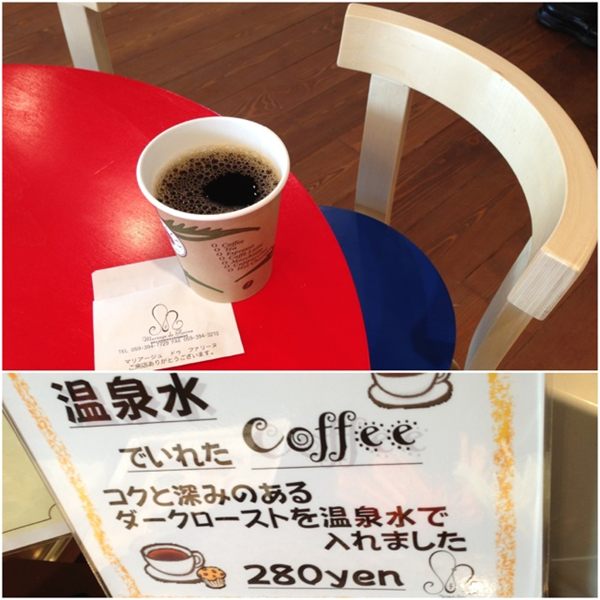 Coffee
Tea
Espresso
Mariage de Farine
TEL 059-394-7729 FAX 059-394-3210
マリアージュ ドゥ ファリーヌ
ご来店ありがとうございます。
温泉水
でいれた Coffee
コクと深みのある
ダークローストを温泉水で
入れました
280yen